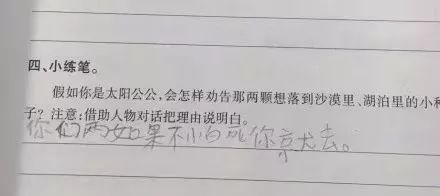 四、小练笔。
假如你是太阳公公,会怎样劝告那两颗想落到沙漠里、湖泊里的小种
子?注意:借助人物对话把理由说明白。
你们两如果不怕死你京尤去。